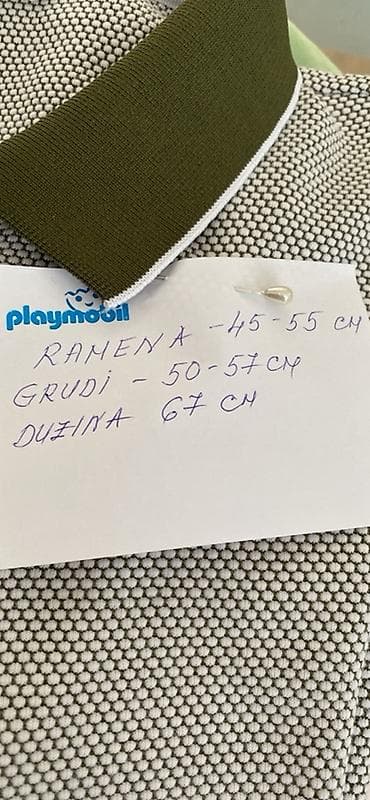 playmobil
RAMENA - 45-55 CM
GRUDI - 50-57 CM
DUŽINA 67 CM